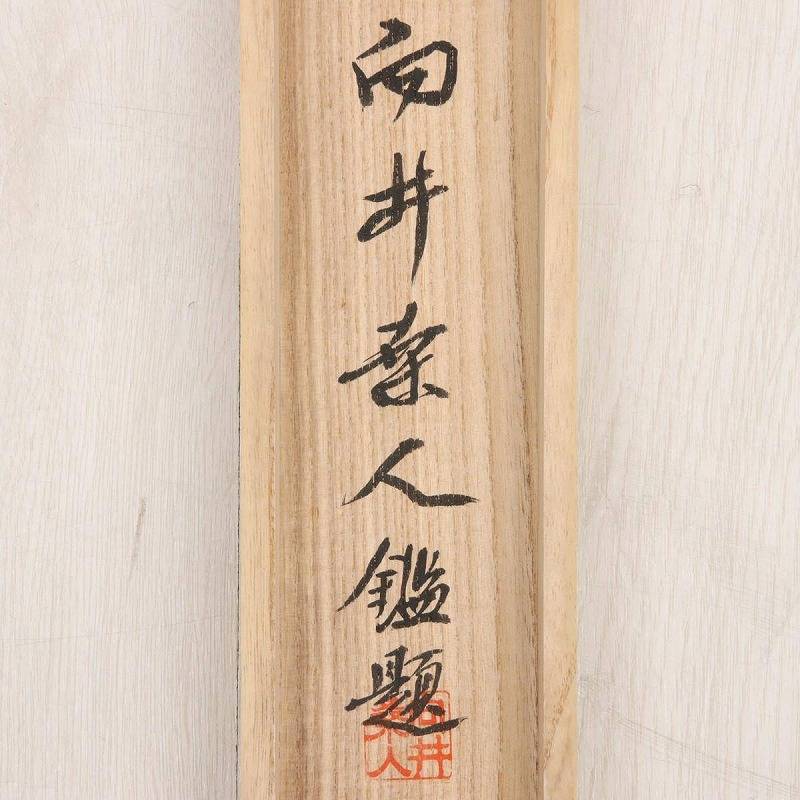 向井桑人鑑題
向井
桑人